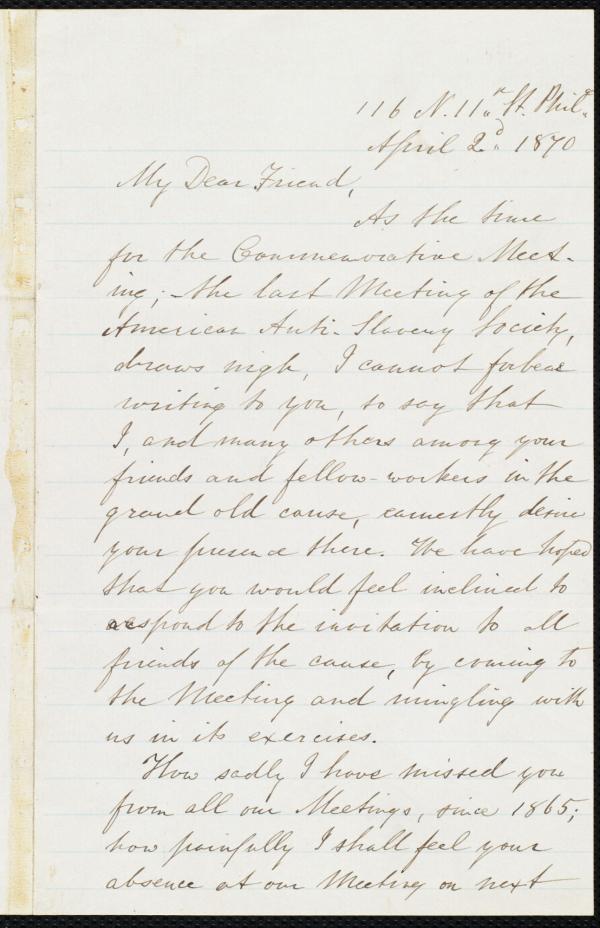 116 N. 11th St. Phila.
April 2d. 1870
My Dear Friend,
As the time
for the Commemorative Meet-
ing; - the last Meeting of the
American Anti-Slavery Society,
draws nigh, I cannot forbear
writing to you, to say that
I, and many others among your
friends and fellow-workers in the
grand old cause, earnestly desire
your presence there. We have hoped
that you would feel inclined to
respond to the invitation to all
friends of the cause, by coming to
the Meeting and mingling with
us in its exercises.
How sadly I have missed you
from all our Meetings, since 1865;
how painfully I shall feel your
absence at our Meeting on next